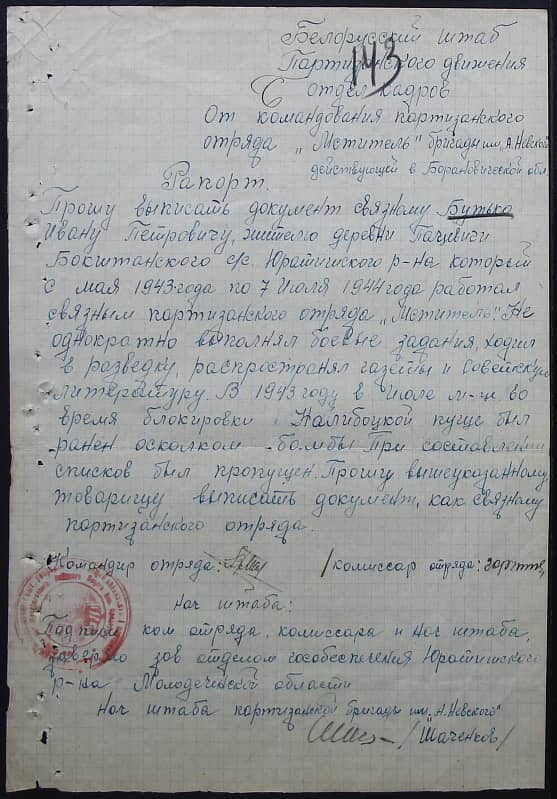 Белорусский штаб
143
Партизанского движения
отдел кадров
От командования партизанского
отряда „Мститель" бригады им. „А.Невский
действующей в Борановической обл.
Рапорт.
Прошу выписать документ связному Бутько
Ивану Петровичу, жителю деревни Пацевичи
Бокштанского с/с. Юратишского р-на который
с мая 1943 года по 7 Июля 1944 года работал
связным партизанского отряда „Мститель". Не
однократно выполнял боевые задания, ходил
в разведку, распространял газеты и Советскую
литературу. В 1943 году в Июле м-це, во
время блокировки Налибоцкой пуще был
ранен осколком бомбы. При составлении
списков был пропущен. Прошу вышеуказанному
товарищу выписать документ, как связному
партизанского отряда.
Командир отряда: /комиссар отряда:
Нач штаба:
Подписи ком отряда, комиссара и нач штаба,
заверяю зав отделом гособеспечения Юратишского
р-на Молодеченской области
Нач штаба партизанской бригады им. „А.Невского"
/Шаченков/